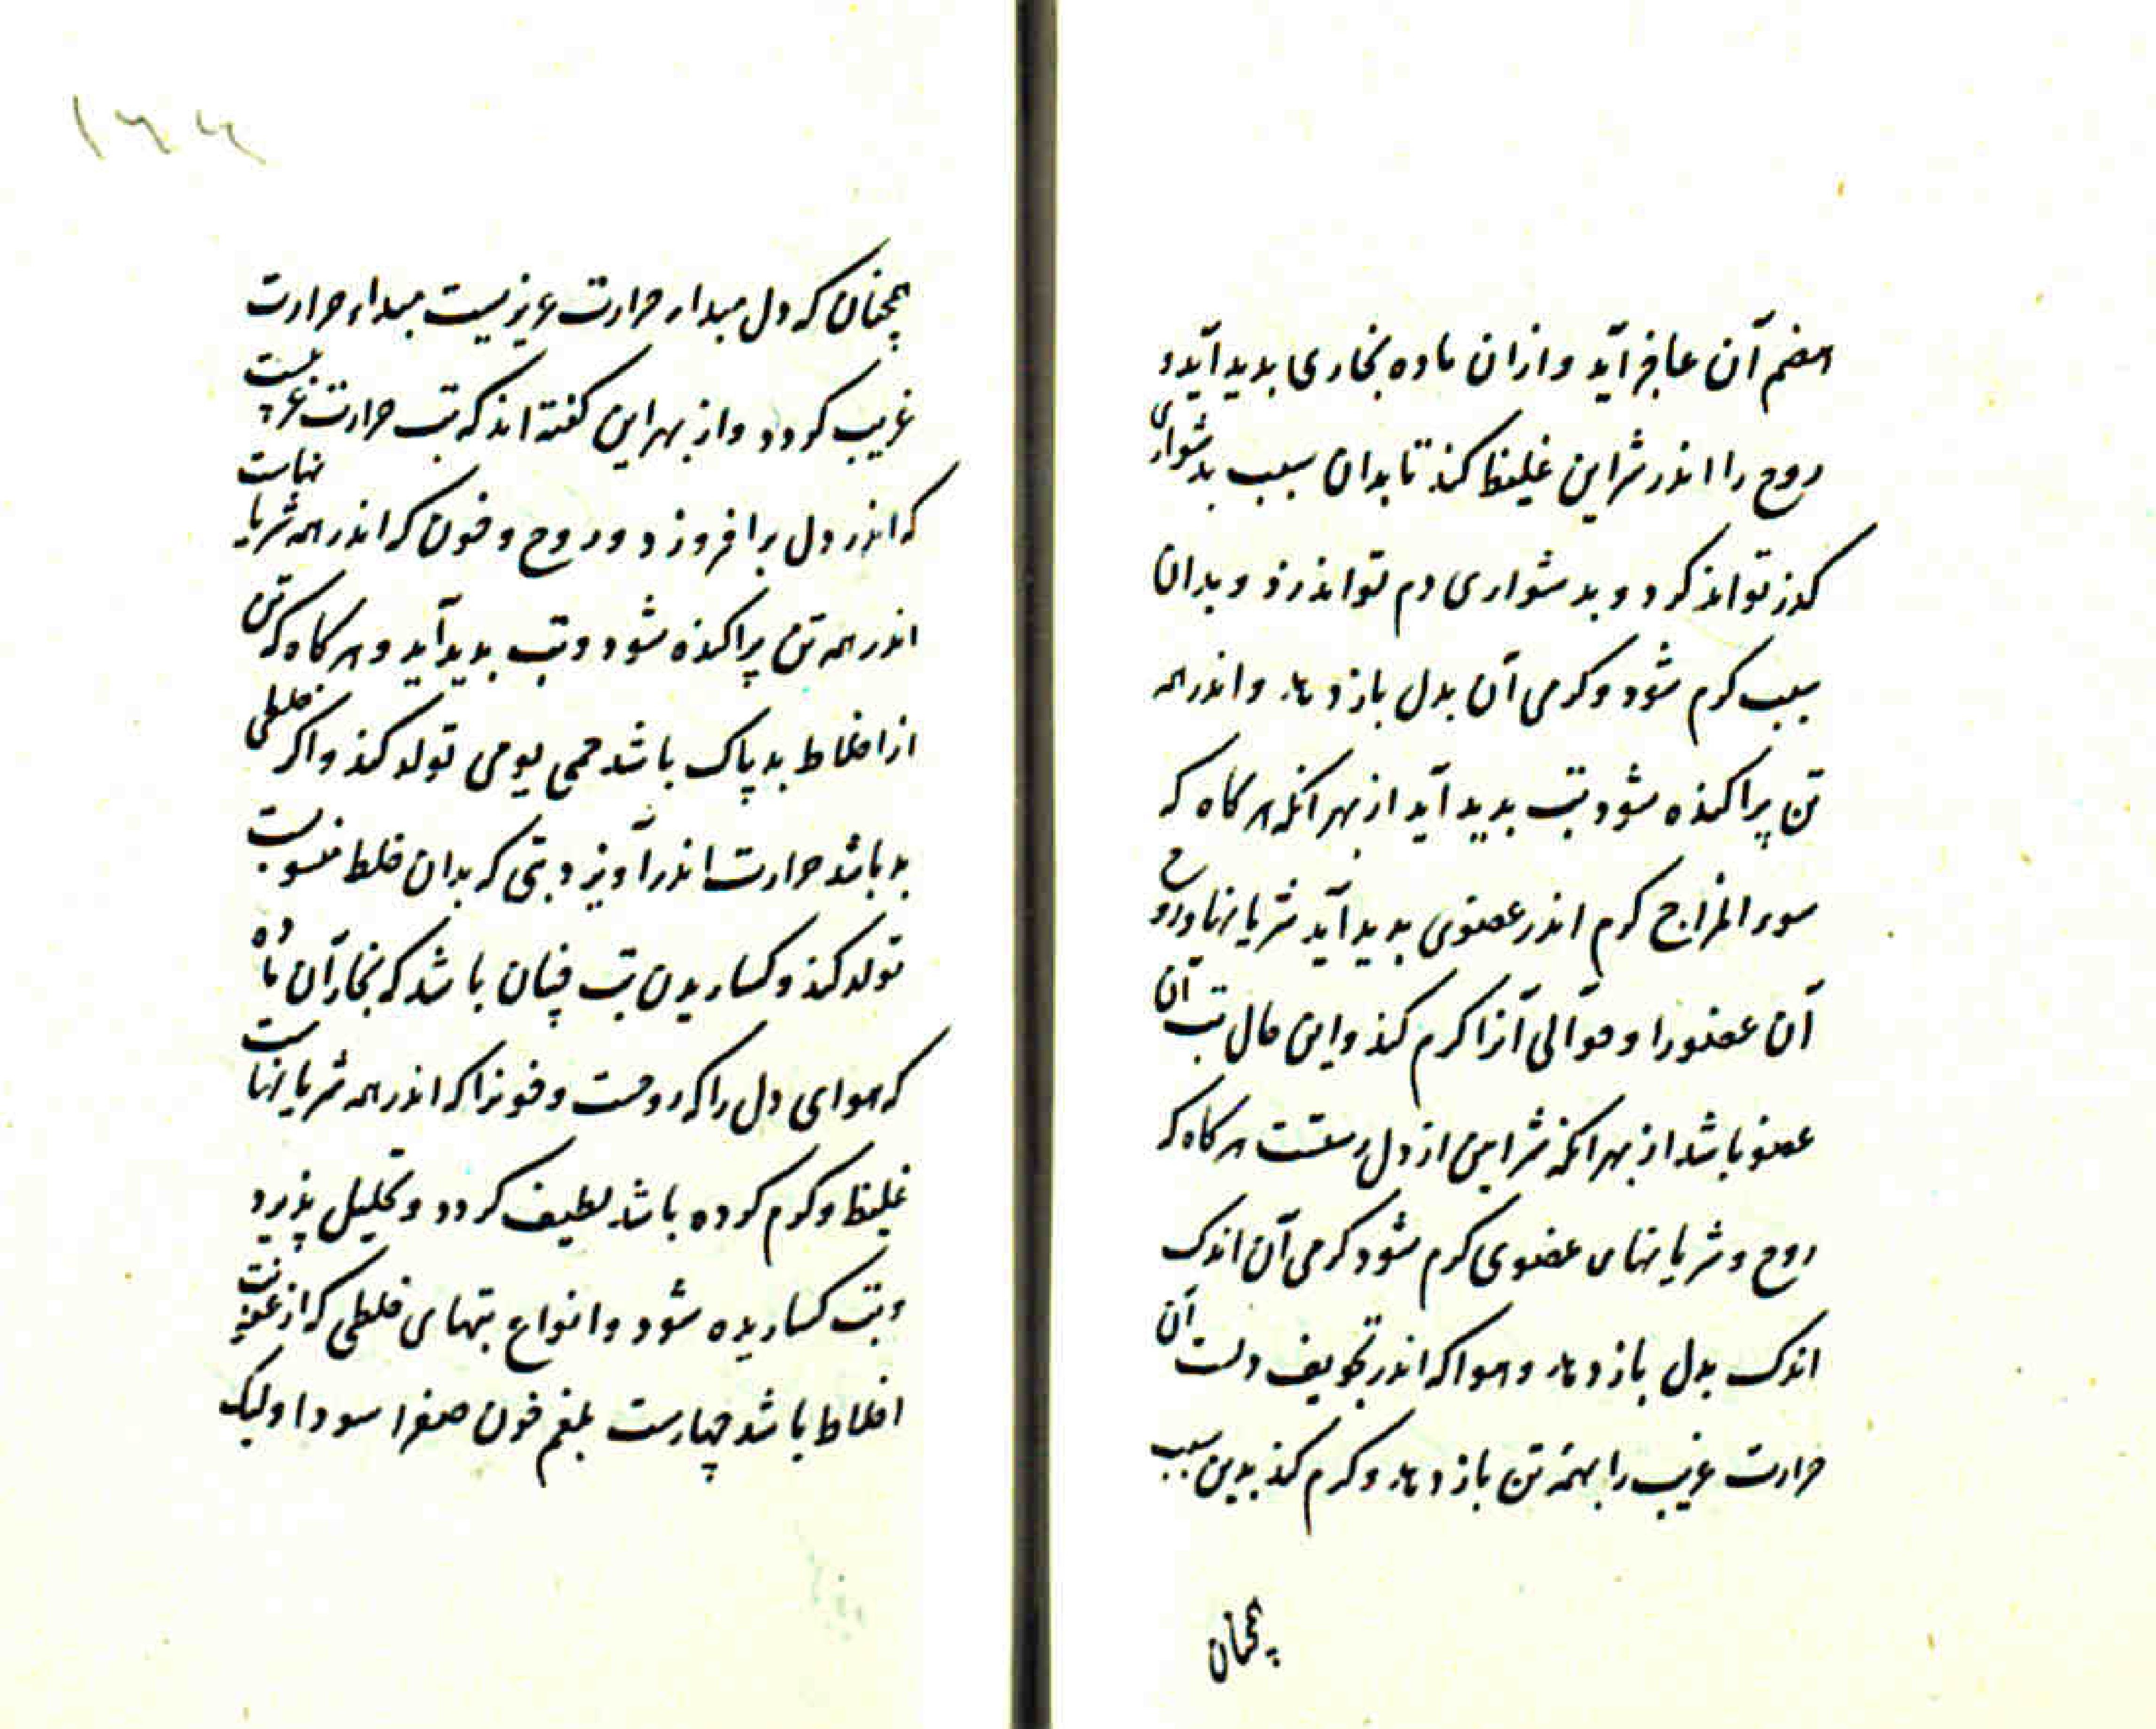 هضم آن عاجز آید و ازان ماده بخاری بدید آید و
روح را اندر شراین غلیظ کند تا بدان سبب بدشواری
کذر تواند کرد و بدشواری دم تواند زد و بدان
سبب کرم شود و کرمی آن بدل باز دهد و اندر همه
تن پراکنده شود تب بدید آید از بهر آنکه هر کاه که
سوء المزاج کرم اندر عضوی بدید آید شریانها و روح
آن عضو را و حوالی آنرا کرم کند و این حال تب آن
عضو باشد از بهر آنکه شراین از دل رستست هر کاه که
روح و شریانهای عضوی کرم شود کرمی آن اندک
اندک بدل باز دهد و هوا که اندر تجویف دلست آن
حرارت غریب را بهمه تن باز دهد و کرم کند بدین سبب
همچنان
۱۶۶
همچنان که دل مبداء حرارت عزیزیست مبداء حرارت
غریب کردد و از بهر این کفته اند که تب حرارت غریبست
که اندر دل برافروزد و روح و خون که اندر همه شریانهاست
اندر همه تن پراکنده شود و تب بدید آید و هر کاه که تن
از اخلاط بد پاک باشد حمی یومی تولد کند و اکر خلطی
بد باشد حرارت اندر آویزد و تبی که بدان خلط منسوبست
تولد کند و کساریدن تب چنان باشد که بخار آن ماده
که هوای دل را که روحست و خونرا که اندر همه شریانهاست
غلیظ و کرم کرده باشد لطیف کردد و تحلیل پذیرد
و تب کساریده شود و انواع تبهای خلطی که از عفونت
اخلاط باشد چهارست بلغم خون صفرا سودا ولیک